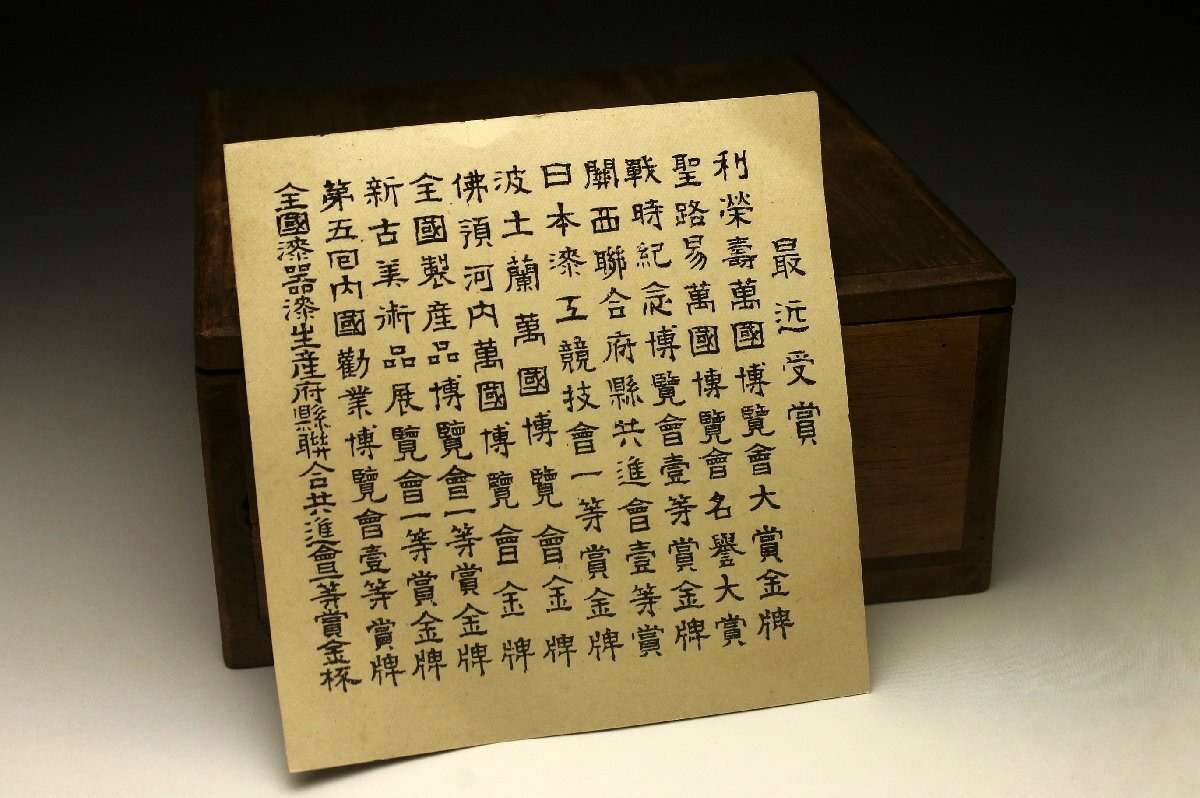 最近受賞
利榮壽萬國博覽會大賞金牌
聖路易萬國博覽會名譽大賞
戰時紀念博覽會壹等賞金牌
關西聯合府縣共進會壹等賞
日本漆工競技會一等賞金牌
波土蘭萬國博覽會金牌
佛領河内萬國博覽會金牌
全國製産品博覽會一等賞金牌
新古美術品展覽會一等賞金牌
第五回内國勸業博覽會壹等賞牌
全國漆器漆生産府縣聯合共進會一等賞金杯